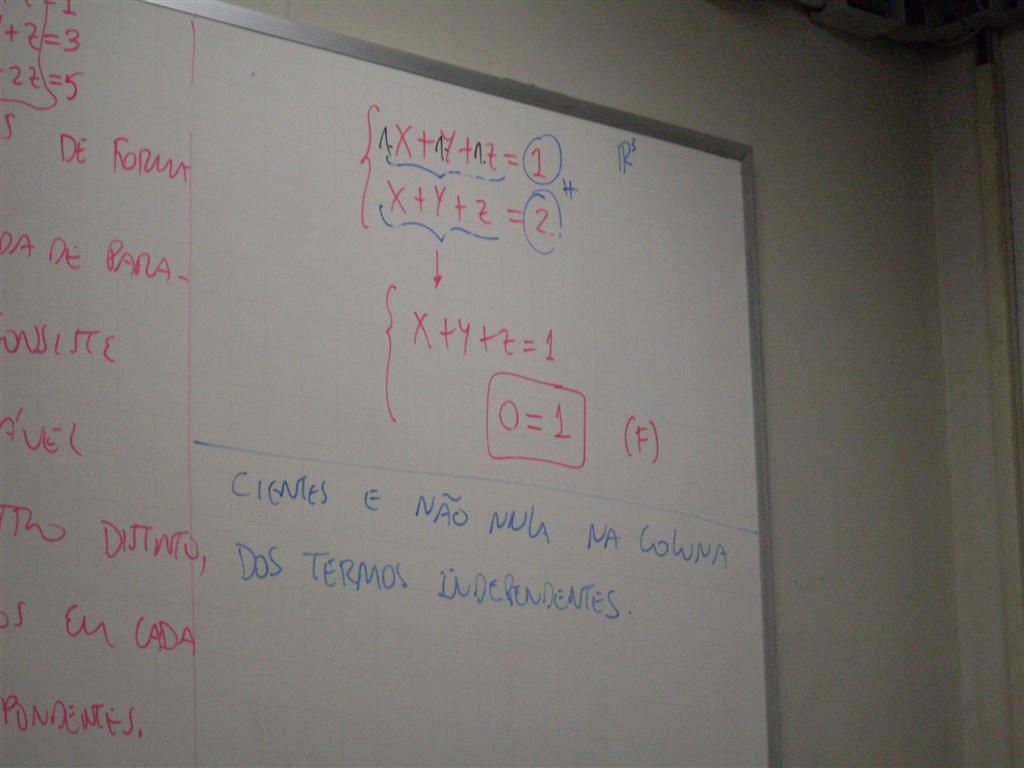 + z = 3
2z = 5
DE FORMA
DE PARA-
ÁVEL
DISTINTO,
EM CADA
PONDENTES.
1.X + 1Y + 1.Z = 1 ℝ³
X + Y + Z = 2
X + Y + Z = 1
0 = 1 (F)
CIENTES E NÃO NULA NA COLUNA
DOS TERMOS INDEPENDENTES.